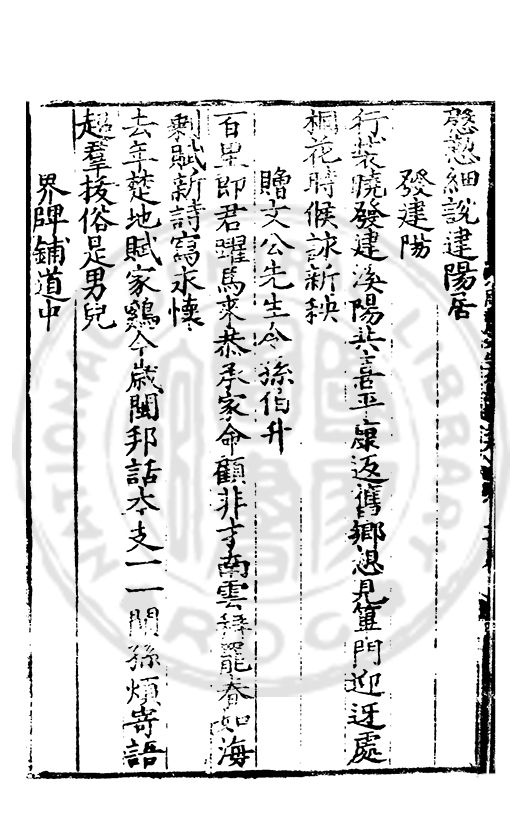 慇懃細說建陽居
發建陽
行裝曉發建溪陽共喜平康返舊鄉想見篳門迎迓處
桐花時候詠新秧
贈文公先生令孫伯升
百里郎君躍馬來恭承家命顧非才南雲拜罷春如海
剩賦新詩寫永懷
去年楚地賦家鷄今歲閩邦話本支一一聞孫煩寄語
超羣拔俗是男兒
界牌鋪道中